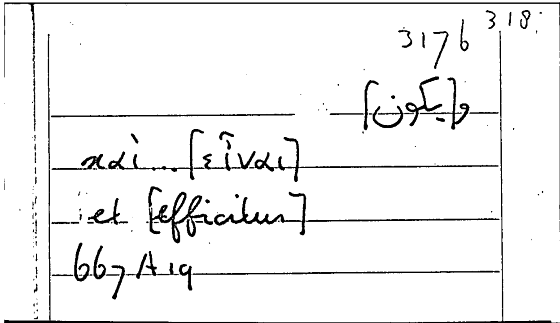 318
3176
و[يكون]
καὶ... [εἶναι]
et [efficitur]
667 A 19